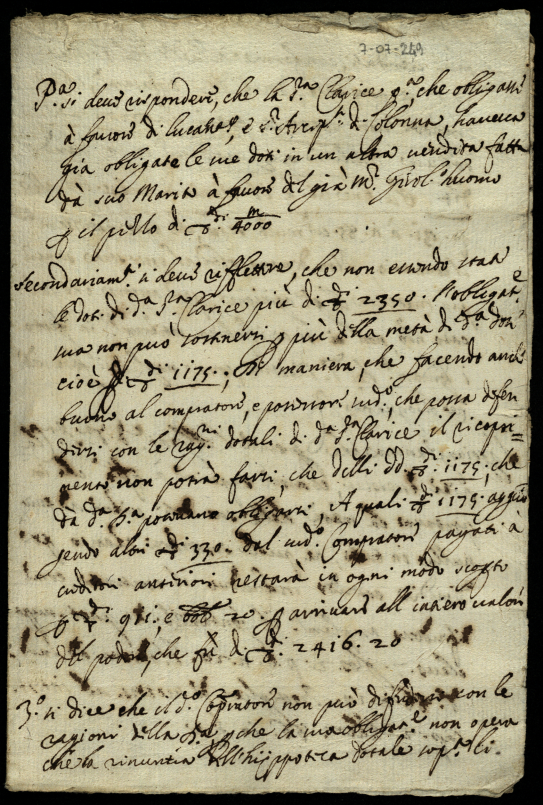 7-07-249
P.a si deve rispondere, che la S.ra Clarice p.a che obligasse
à favore di Lucant.o, e S.r Arcip.te di Solonna, haveva
già obligate le sue doti in un altra vendita fatta
dà suo Marito à favore del già M.r Girol.o huomo
p il pillo di di 4000
secondariam.te si deve riflettere, che non essendo state
le doti di d.a S.ra Clarice più di di 2350. l'obligat.e
sua non può sostenersi p più della metà di d.a dote
cioè di 1175; Di maniera, che facendo anche
buono al compratore, e possessore sud.o, che possa defen
dersi con le rag.ni dotali di d.a S.ra Clarice il ricopri=
mento non potrà farsi, che delli dd. di 1175; che
dà d.a S.ra potevano obligarsi, A quali di 1175. aggiu
gendo altri di 330. dal sud.o Compratore pagati a
creditori anteriori restarà in ogni modo scoperto
p di 911, e 20. p arrivare all' intiero valore
del podere, che fù di di 2416.20
3.o si dice che il d.o Compratore non può difendersi con le
ragioni della S.ra p che la sua obligat.e non opera
che la rinuntia dell' hippoteca dotale sop.a li